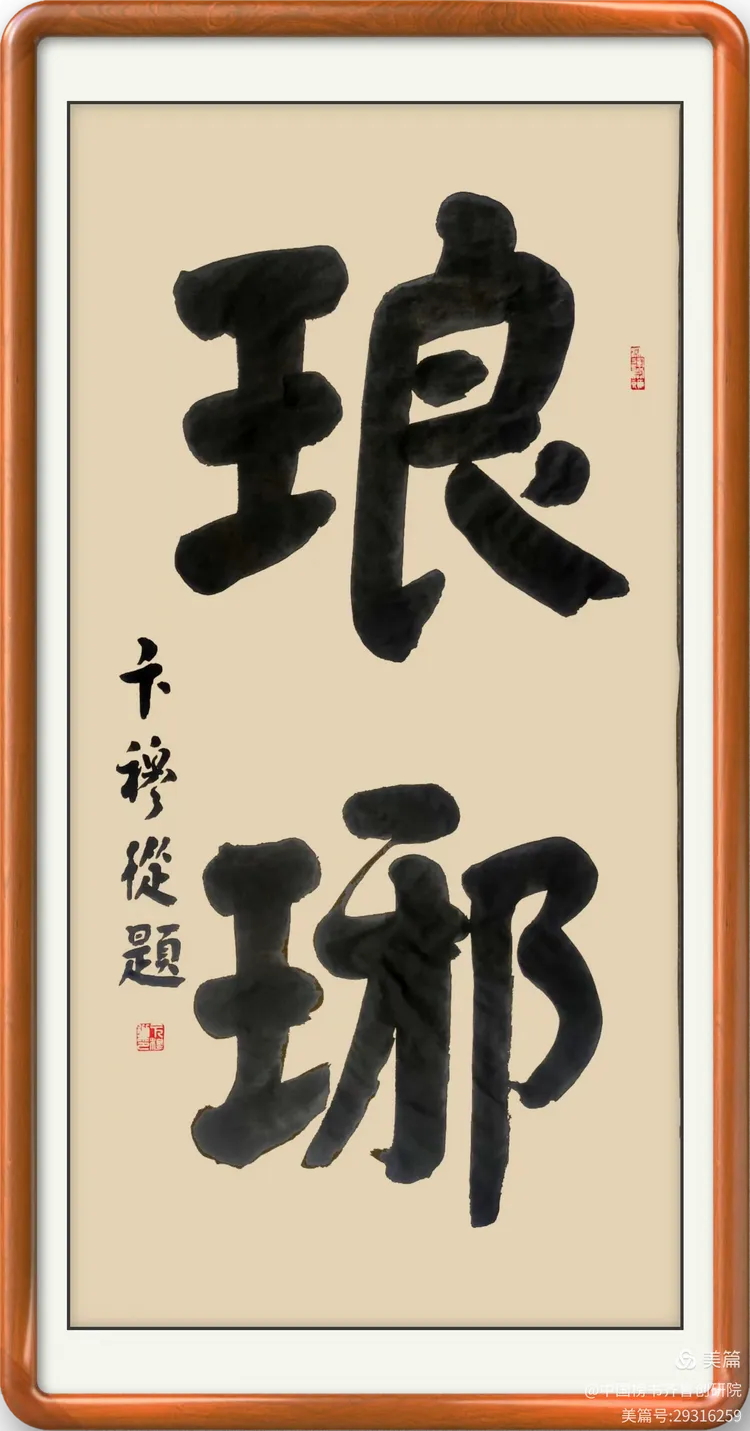 琅琊
卞穆從題
美篇
@中国榜书齐鲁创研院
美篇号:29316259